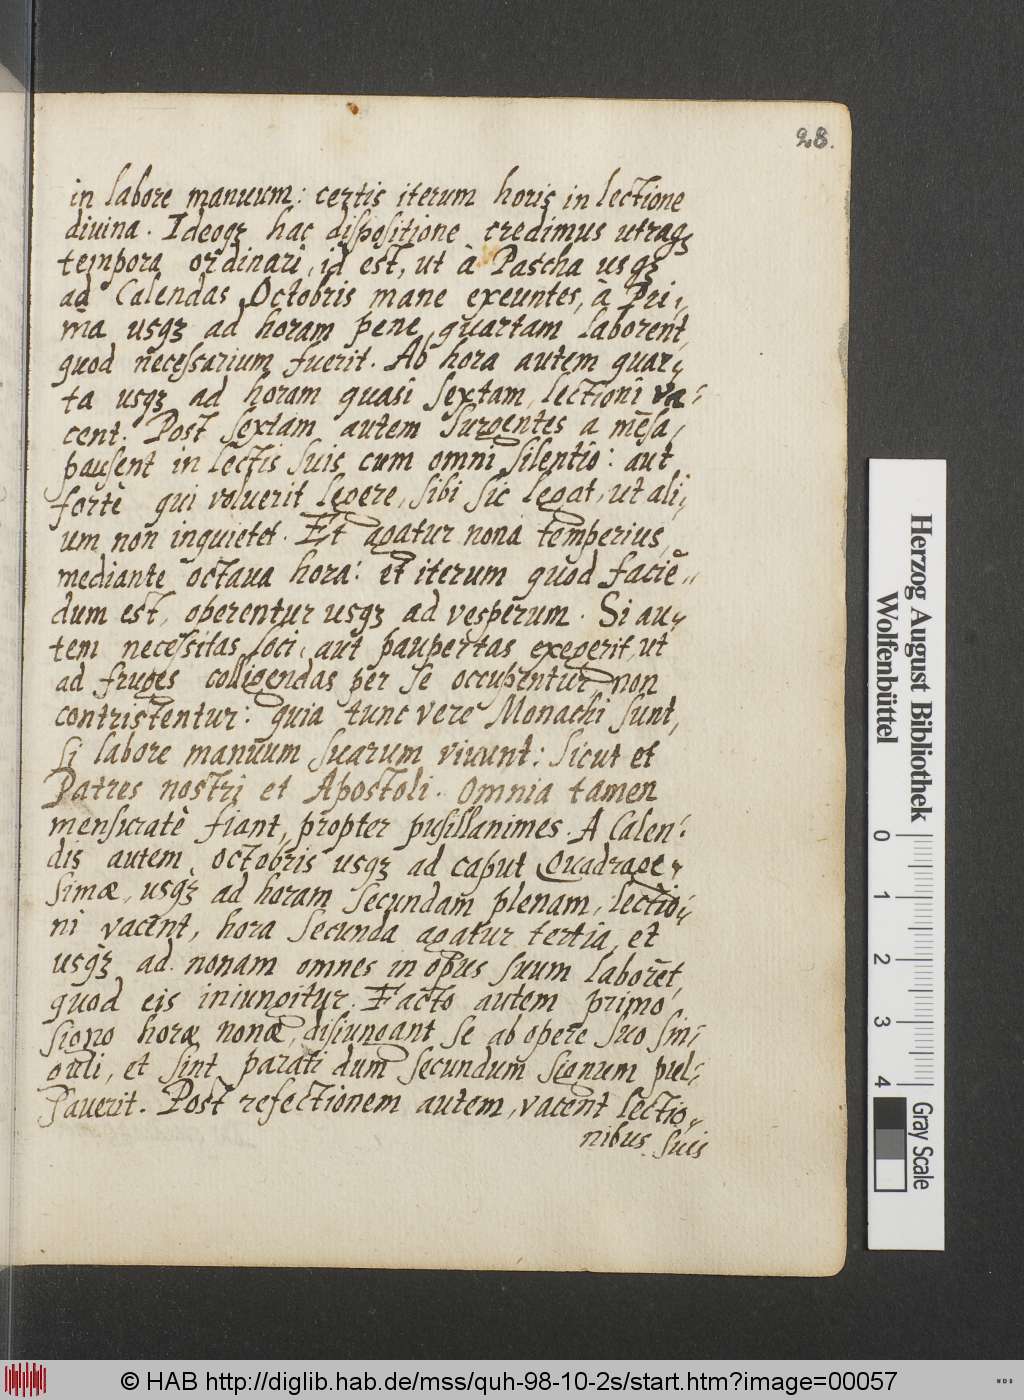 28.
in labore manuum: certis iterum horis in lectione
diuina. Ideoqꝫ hac dispositione credimus utraqꝫ
tempora ordinari, id est, ut à Pascha usqꝫ
ad Calendas Octobris mane exeuntes, à Pri,,
ma usqꝫ ad horam pene quartam laborent,
quod necessarium fuerit. Ab hora autem quar,,
ta usqꝫ ad horam quasi sextam, lectioni va,,
cent. Post sextam autem surgentes a mẽsa,
pausent in lectis suis cum omni silentio: aut
fortè qui voluerit legere, sibi sic legat, ut ali,,
um non inquietet. Et agatur nona temperius,
mediante octaua hora: et iterum quod faciẽ,,
dum est, operentur usqꝫ ad vesperum. Si au,,
tem necessitas loci, aut paupertas exegerit, ut
ad fruges colligendas per se occupentur non
contristentur: quia tunc vere Monachi sunt,
si labore manuum suarum viuunt: sicut et
Patres nostri et Apostoli. Omnia tamen
mensuratè fiant, propter pusillanimes. A Calen,,
dis autem Octobris usqꝫ ad caput Quadrage,,
simæ, usqꝫ ad horam secundam plenam, lectio,,
ni vacent, hora secunda agatur tertia, et
usqꝫ ad nonam omnes in opus suum laborẽt,
quod eis iniungitur. Facto autem primo
signo horæ nonæ, disiungant se ab opere suo sin,,
guli, et sint parati dum secundum signum pul,,
sauerit. Post refectionem autem, vacent lectio,,
nibus suis
Herzog August Bibliothek
Wolfenbüttel
0 1 2 3 4
Gray Scale
© HAB http://diglib.hab.de/mss/quh-98-10-2s/start.htm?image=00057